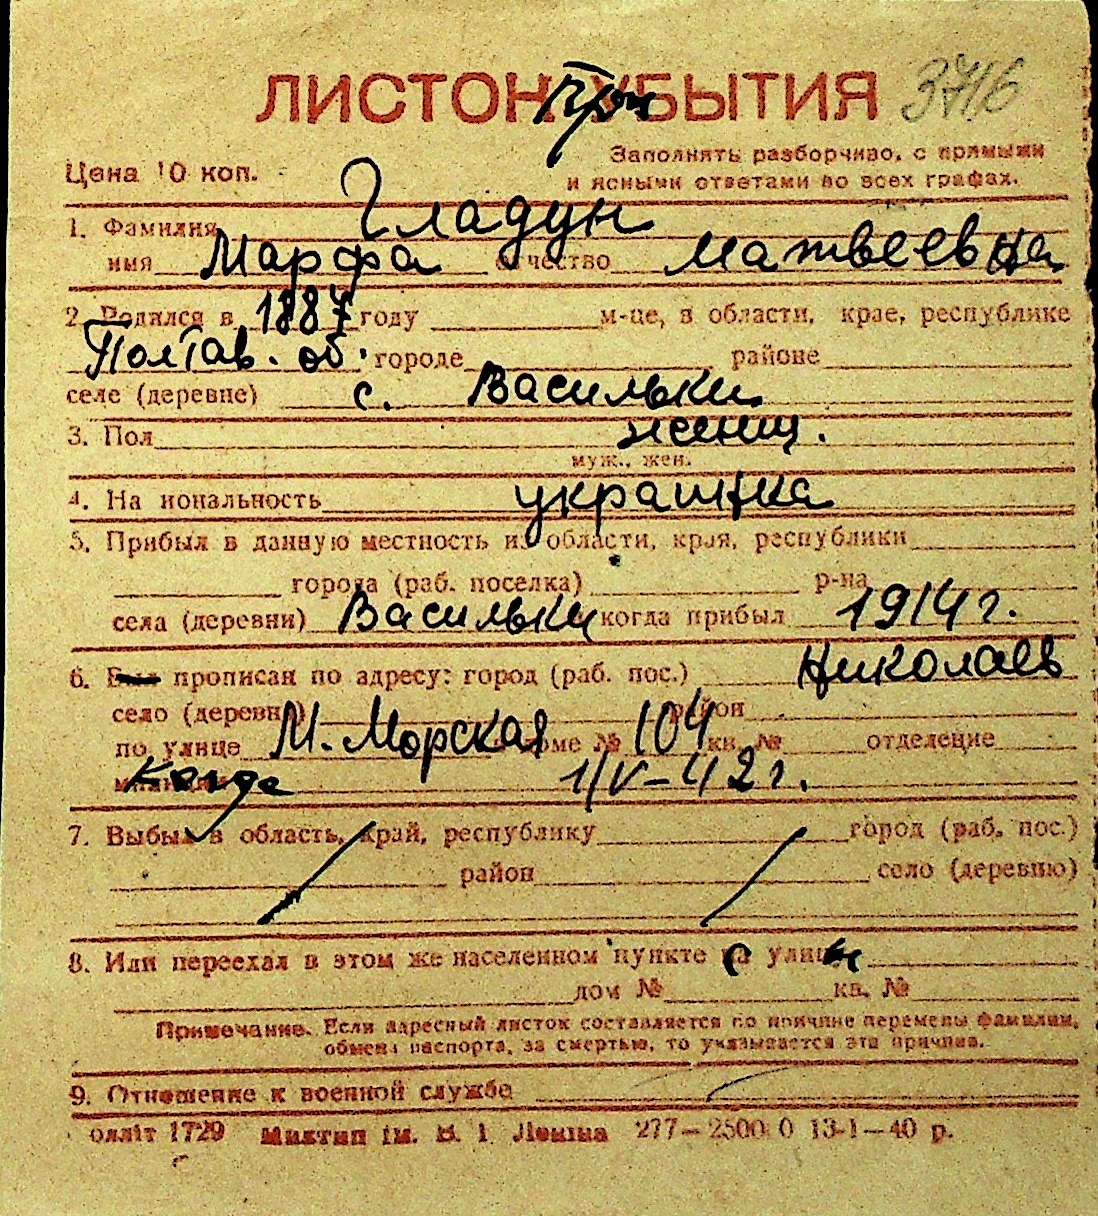 ЛИСТОК УБЫТИЯ 3716
При
Цена 10 коп.
Заполнять разборчиво, с прямыми
и ясными ответами во всех графах.
1. Фамилия Гладун
имя Марфа отчество Матвеевна
2. Родился в 1887 году м-це, в области, крае, республике
Полтав. об. городе районе
селе (деревне) с. Васильки
3. Пол женщ.
муж., жен.
4. На иональность украинка
5. Прибыл в данную местность из области, края, республики
города (раб. поселка) р-на
села (деревни) Васильки когда прибыл 1914 г.
6. Был прописан по адресу: город (раб. пос.) Николаев
село (деревня) район
по улице М. Морская доме № 104 кв. № отделение
милиции Когда 1/V-42 г.
7. Выбыл в область, край, республику город (раб. пос.)
район село (деревню)
8. Или переехал в этом же населенном пункте с улицы
дом № кв. №
Примечание. Если адресный листок составляется по причине перемены фамилии,
обмена паспорта, за смертью, то указывается эта причина.
9. Отношение к военной службе
оллiт 1729 iм. В. І Ленiна 277—2500 0 13-1—40 р.